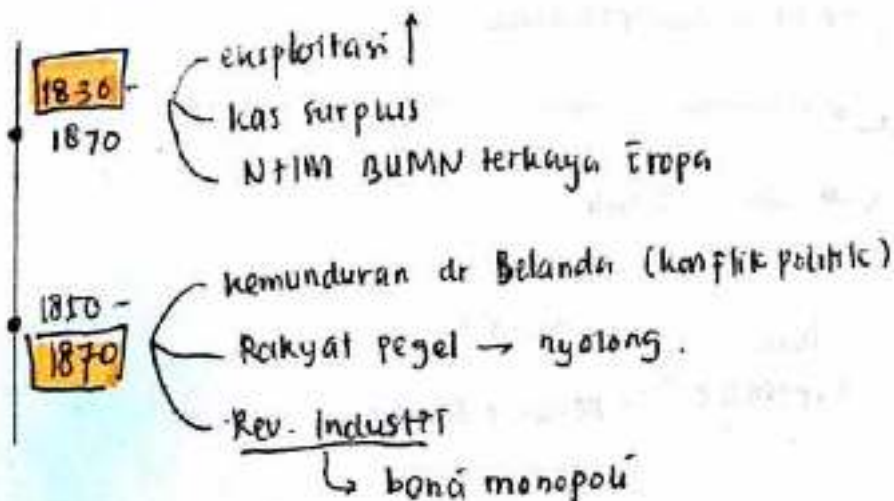 1830 -
1870
eksploitasi ↑
kas surplus
NHM BUMN terkaya Eropa
1850 -
1870
kemunduran dr Belanda (konflik politik)
Rakyat pegel → nyolong.
Rev. Industri
↳ monopoli